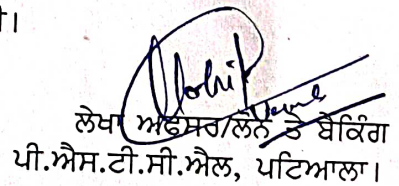 ੀ।
ਲੇਖਾ ਅਫਸਰ/ਲੋਨ ਤੇ ਬੈਕਿੰਗ
ਪੀ.ਐਸ.ਟੀ.ਸੀ.ਐਲ, ਪਟਿਆਲਾ।